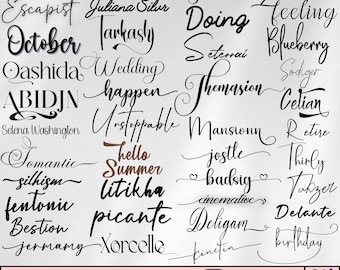 Escapist
October
Oashida
ABIDJN
Selena Washington
Romantic
silhism
fentonic
Bestion
jermamy
Juliana Silor
Tarkash
Wedding
happen
Unstoppable
hello
Summer
litikha
picante
Xorcelle
Doing
Seterrai
Themasion
Mansionn
jostle
badsig
cinematic
Deligam
kinetin
Feeling
Blueberry
Sodger
Celian
Retire
Thirly
Tuhzer
Delante
birthday